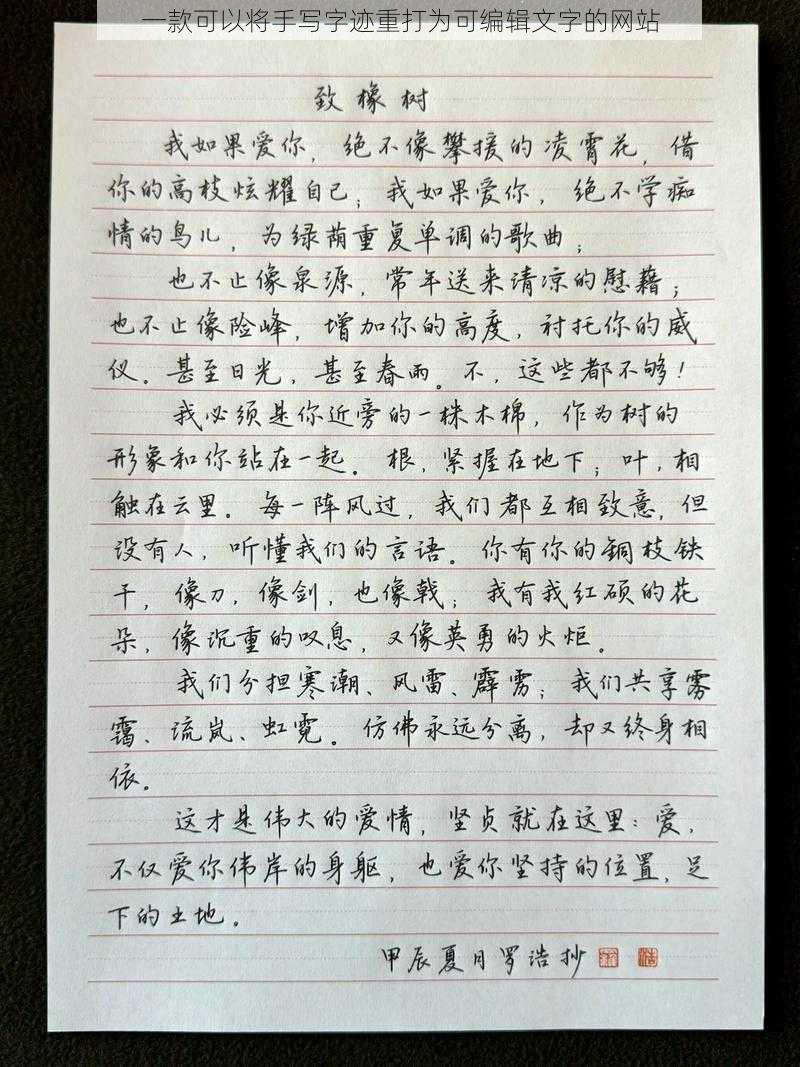 一款可以将手写字迹重打为可编辑文字的网站
致橡树
我如果爱你，绝不像攀援的凌霄花，借
你的高枝炫耀自己；我如果爱你，绝不学痴
情的鸟儿，为绿荫重复单调的歌曲；
也不止像泉源，常年送来清凉的慰藉；
也不止像险峰，增加你的高度，衬托你的威
仪。甚至日光，甚至春雨。不，这些都不够！
我必须是你近旁的一株木棉，作为树的
形象和你站在一起。根，紧握在地下；叶，相
触在云里。每一阵风过，我们都互相致意，但
没有人，听懂我们的言语。你有你的铜枝铁
干，像刀，像剑，也像戟；我有我红硕的花
朵，像沉重的叹息，又像英勇的火炬。
我们分担寒潮、风雷、霹雳；我们共享雾
霭、流岚、虹霓。仿佛永远分离，却又终身相
依。
这才是伟大的爱情，坚贞就在这里：爱，
不仅爱你伟岸的身躯，也爱你坚持的位置，足
下的土地。
甲辰夏月罗浩抄